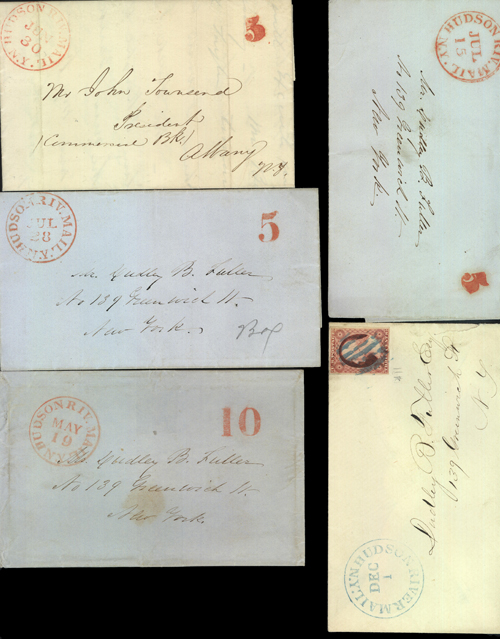 HUDSON RIV. MAIL. N.Y.
30
5
Mr John Townsend
President
(Commercial Bk)
Albany
N.Y.
HUDSON RIV. MAIL. N.Y.
JUL
28
5
Mr. Dudley B. Fuller
No 139 Greenwich St.
New York.
Box
HUDSON RIV. MAIL. N.Y.
MAY
19
10
Mr. Dudley B. Fuller
No 139 Greenwich St.
New York.
HUDSON RIV. MAIL. N.Y.
JUL
15
5
Mr. Dudley B. Fuller
No 139 Greenwich St.
New York.
Dudley B. Fuller
139 Greenwich St
N Y
HUDSON RIVER MAIL. N.Y.
DEC
1